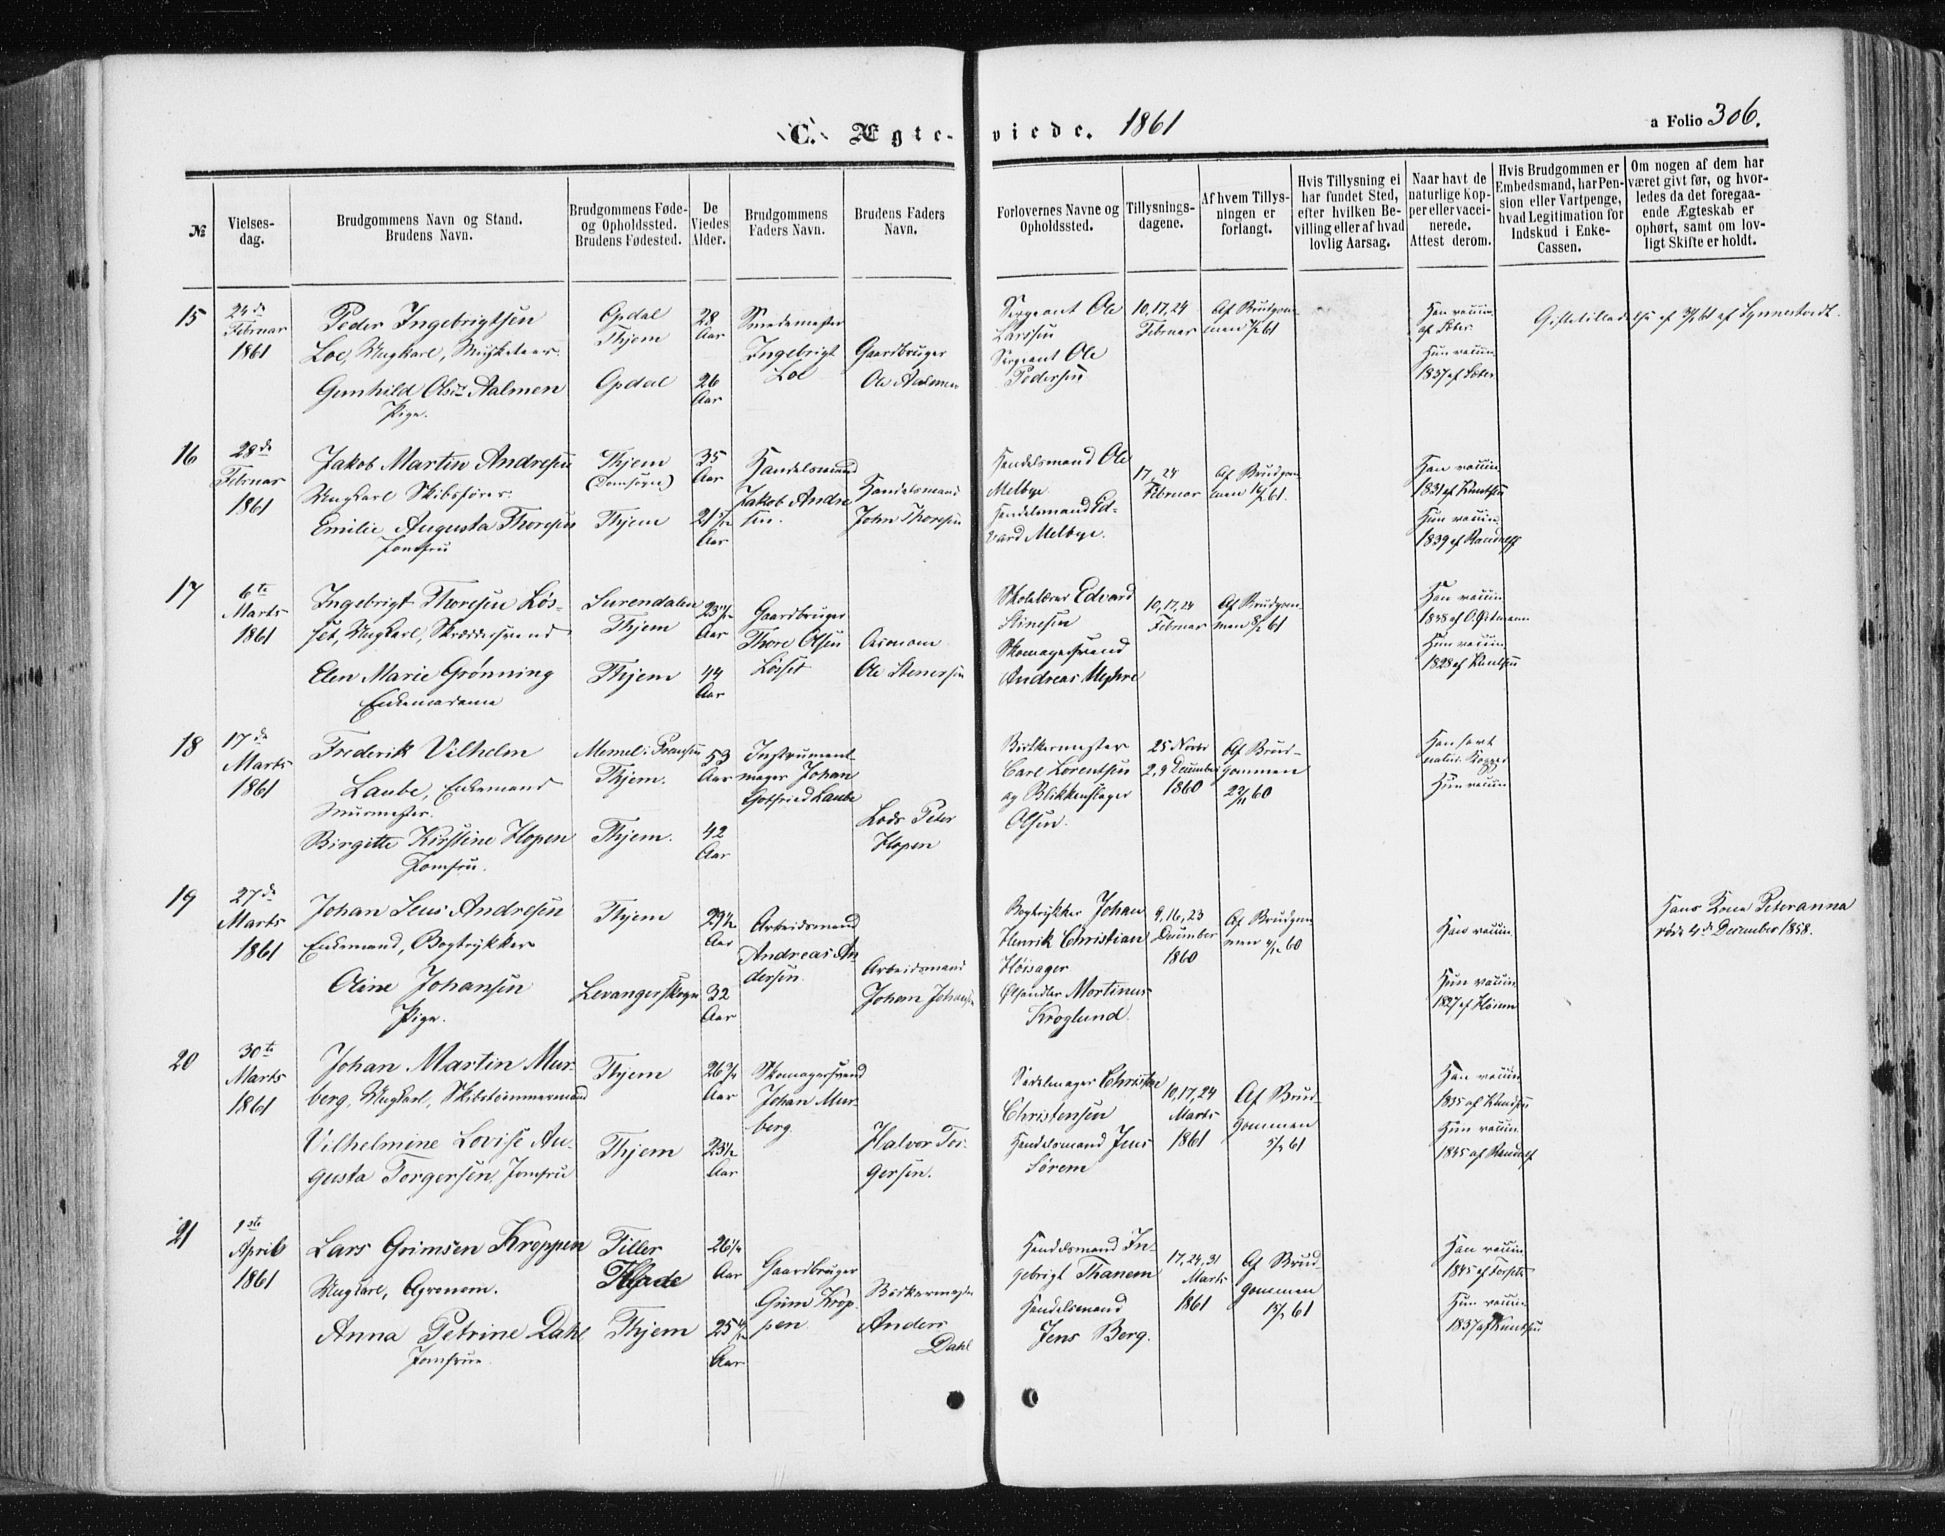 C. Ægte- viede. 1861
a Folio 306.
№
Vielses-
dag.
Brudgommens Navn og Stand.
Brudens Navn.
Brudgommens Føde-
og Opholdssted.
Brudens Fødested.
De
Viedes
Alder.
Brudgommens
Faders Navn.
Brudens Faders
Navn.
Forlovernes Navne og
Opholdssted.
Tillysnings-
dagene.
Af hvem Tillys-
ningen er
forlangt.
Hvis Tillysning ei
har fundet Sted,
efter hvilken Be-
villing eller af hvad
lovlig Aarsag.
Naar havt de
naturlige Kop-
per eller vacci-
nerede.
Attest derom.
Hvis Brudgommen er
Embedsmand, har Pen-
sion eller Vartpenge,
hvad Legitimation for
Indskud i Enke-
Cassen.
Om nogen af dem har
været givt før, og hvor-
ledes da det foregaa-
ende Ægteskab er
ophørt, samt om lov-
ligt Skifte er holdt.
15
24de
Februar
1861
Peder Ingebrigtsen
Loe, Ungkarl, Musketeer.
Gunhild Olsdr Aalmen
Pige.
Opdal
Thjem
Opdal
28
Aar
26
Aar
Smedemester
Ingebrigt
Loe
Gaardbruger
Ole Aalmen
Sergeant Ole
Larssen
Sergeant Ole
Pedersen
10, 17, 24
Februar
Af Brudgom-
men 7/2 61
Han vaccin
Hun vaccin
1837 af
16
28de
Februar
1861
Jakob Martin Andresen
Ungkarl Skibsfører.
Emilie Augusta Thoresen
Jomfru
Thjem
(Domsogn)
Thjem
35
Aar
21 5/12
Aar
Handelsmand
Jakob Andre
sen.
Handelsmand
John Thoresen
Handelsmand Ole
Melbye
Handelsmand Ed-
vard Melbye.
17, 24
Februar
Af Brudgom-
men 61.
Han vaccin
1831 af Knutsen
Hun vaccin
1839 af Randulff
17
6te
Marts
1861
Ingebrigt Thoresen Løs-
set, Ungkarl, Skræddersvend
Elen Marie Grønning
Enkemadame
Surendalen
Thjem
Thjem
Aar
44
Aar
Gaardbruger
Thore Olsen
Løsset
Ole Stenersen
Skolelærer Edvard
Stinesen
Skomagersvend
Andreas Myhre
10, 17, 24
Februar
Af Brudgom-
men 8/2 61
Han vaccin
1838 af
Hun vaccin
1828 af Knutsen
18
17de
Marts
1861
Frederik Vilhelm
Laube, Enkemand
Murmester.
Birgitte Kirstine Hopen
Jomfru.
Memel i Preussen
Thjem.
Thjem.
53
Aar
42
Aar
Instrument-
mager Johan
Gotfried Laube
Lods Peter
Hopen
Bødkermester
Carl Lorentsen
og Blikkenslager
Olsen.
25 Novbr
2, 9 December
1860
Af Brud-
gommen
60
Han havt
naturl. Kopper
Hun vaccin
19
27de
Marts
1861
Johan Leus Andresen
Enkemand, Bogtrykker
Oline Johansen
Pige.
Thjem
Levangerskogn
29½
Aar
32
Aar
Arbeidsmand
Andreas An
dersen
Arbeidsmand
Johan Johansen
Bogtrykker Johan
Henrik Christian
Høisager
Ølhandler Mortinus
Kroglund.
9, 16, 23
December
1860
Af Brudgom
men 60
Han vaccin
Hun vaccin
1827 af
Hans Kone Peteranna
døde 4de December 1858.
20
30te
Marts
1861
Johan Martin Mur-
berg, Ungkarl, Skibstømmermand
Vilhelmine Lovise Au-
gusta Torgersen, Jomfru
Thjem
Thjem
26 ¾
Aar
Aar
Skomagersvend
Johan Mur-
berg
Halvor Tor
gersen.
Sadelmager Christen
Christensen
Handelsmand Jens
Sørem
10, 17, 24
Marts
1861
Af Brud-
gommen
61
Han vaccin
1835 af Knudsen
Hun vaccin
1845 af Randulf
21
1ste
April
1861
Lars Grimsen Kroppen
Ungkarl, Agronom.
Anna Petrine Dahl
Jomfrue
Tiller
Thjem
Aar
Aar
Gaardbruger
Grim Krop-
pen
Bødkermester
Anders
Dahl
Handelsmand In-
gebrigt Thanem
Handelsmand
Jens Berg.
17, 24, 31
Marts
1861
Af Brud-
gommen
61
Han vaccin
1845 af
Hun vaccin
1837 af Knutsen